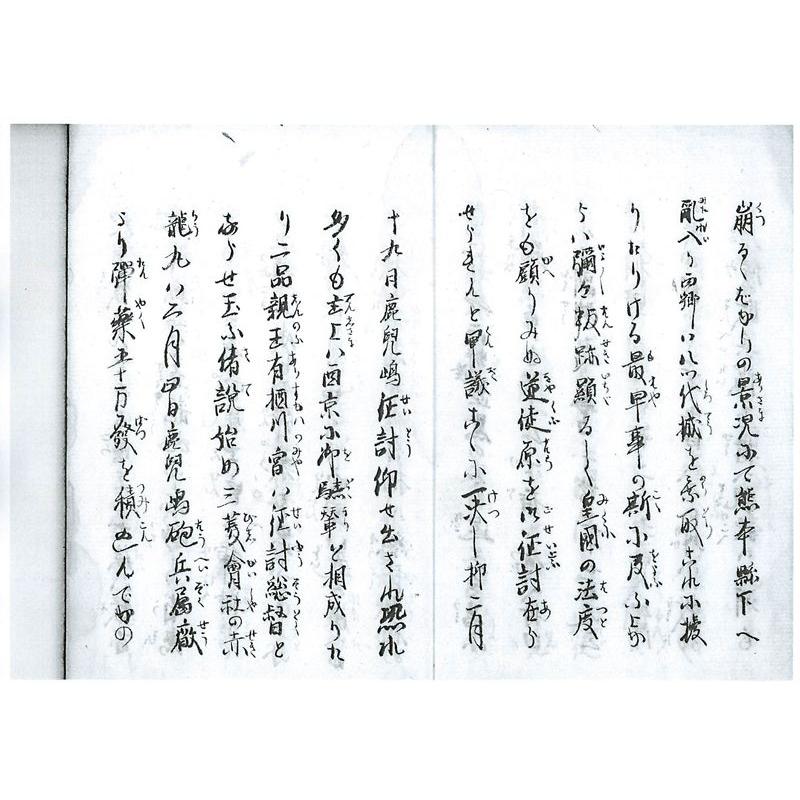 崩るゝばかりの景况にて熊本縣下へ
亂入し西郷は八代城を乗取これに據
りたりける最早事の斯に及ふよか
らハ彌々叛跡顕るしく皇國の法度
をも顧りみぬ逆徒原を以征討在ら
せられんと軍議こゝに一决し抑二月
十九日鹿兒嶋征討仰せ出され恐れ
多くも主上ハ西京に御驂輦と相成りた
り二品親王有栖川宮ハ征討総督と
あらせ玉ふ偖説始め三菱會社の赤
龍丸ハ二月四日鹿兒嶋砲兵属廠
より彈薬五十万發を積込んでかの